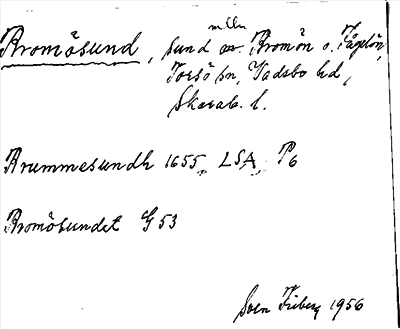 mlln
Bromösund, sund av. Bromön o. Fågelön,
Torsö sn, Vadsbo hd,
Skarab. l.
Brummesundh 1655 LSA P6
Bromösundet G 53
Sven Friberg 1956